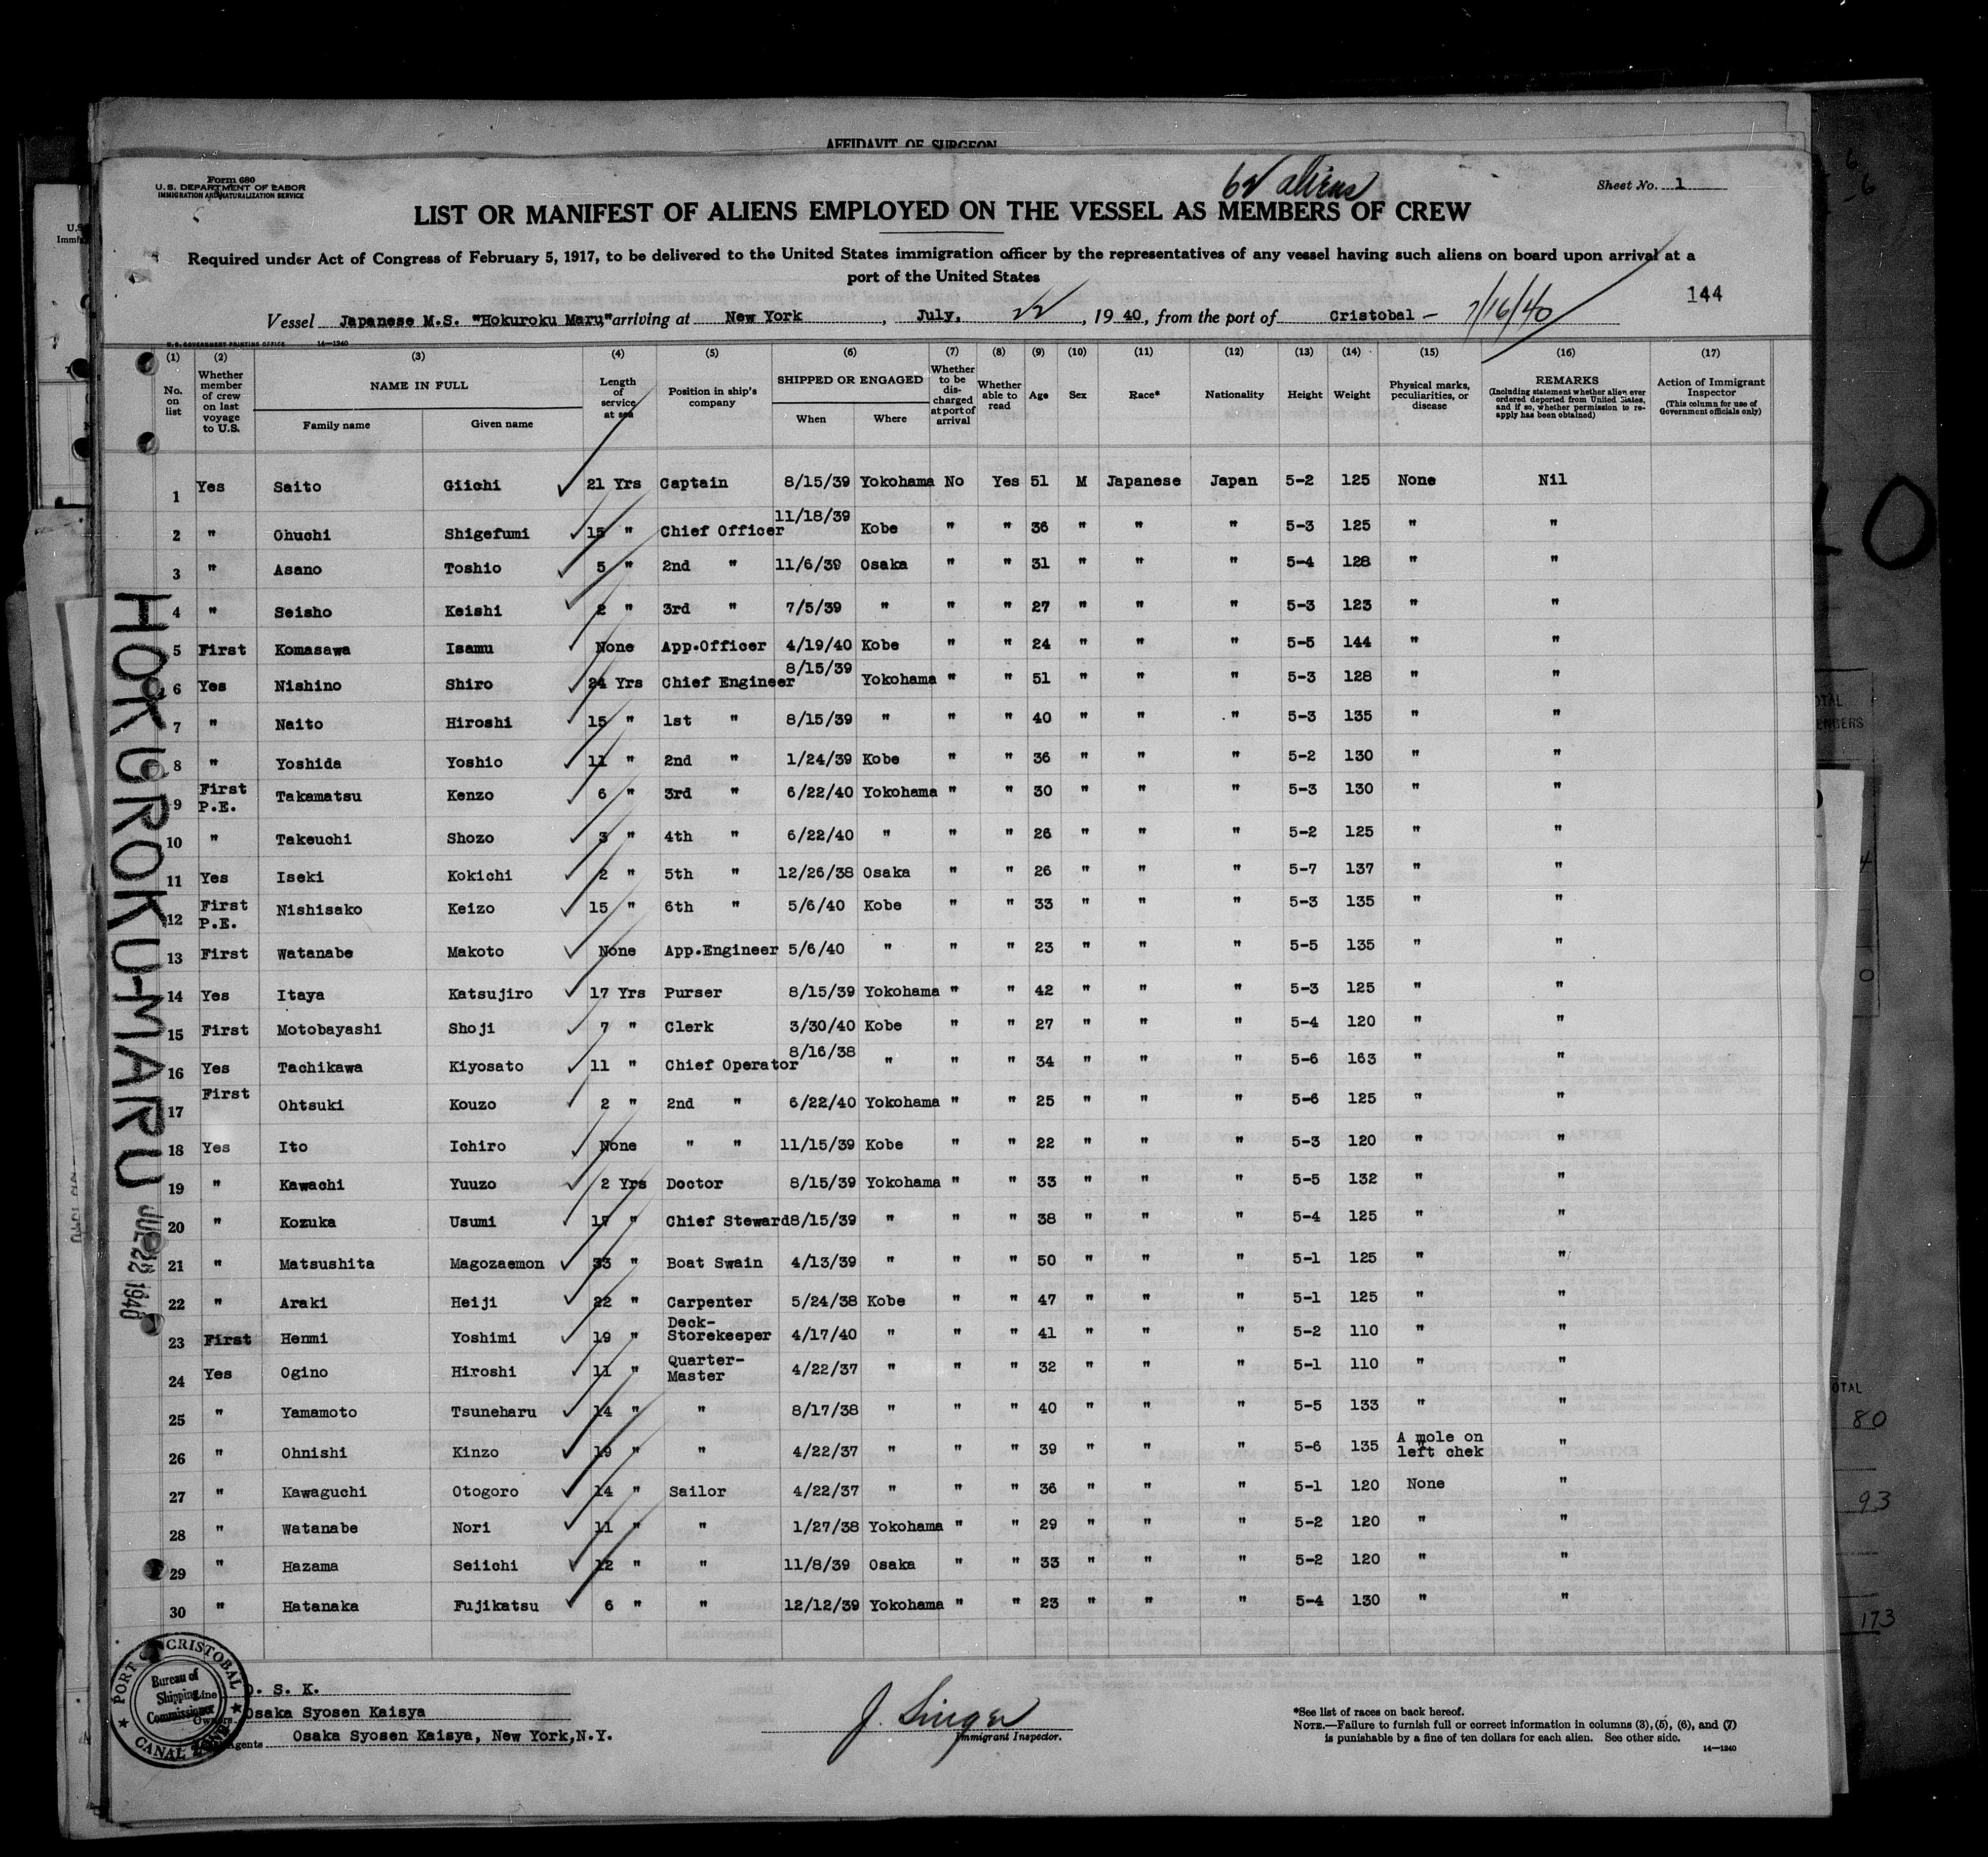 AFFIDAVIT OF SURGEON
Form 680
U.S. DEPARTMENT OF LABOR
IMMIGRATION AND NATURALIZATION SERVICE
62 aliens
Sheet No. 1
LIST OR MANIFEST OF ALIENS EMPLOYED ON THE VESSEL AS MEMBERS OF CREW
Required under Act of Congress of February 5, 1917, to be delivered to the United States immigration officer by the representatives of any vessel having such aliens on board upon arrival at a
port of the United States
144
Vessel Japanese M.S. "Hokuroku Maru" arriving at New York, July, 22, 1940, from the port of Cristobal - 7/16/40
U.S. GOVERNMENT PRINTING OFFICE 14—1240
(1) (2) (3) (4) (5) (6) (7) (8) (9) (10) (11) (12) (13) (14) (15) (16) (17)
No. on list
Whether member of crew on last voyage to U.S.
NAME IN FULL
Family name Given name
Length of service at sea
Position in ship's company
SHIPPED OR ENGAGED
When Where
Whether to be discharged at port of arrival
Whether able to read
Age Sex Race* Nationality Height Weight
Physical marks, peculiarities, or disease
REMARKS
(Including statement whether alien ever ordered deported from United States, and if so, whether permission to reapply has been obtained)
Action of Immigrant Inspector
(This column for use of Government officials only)
1 Yes Saito Giichi 21 Yrs Captain 8/15/39 Yokohama No Yes 51 M Japanese Japan 5-2 125 None Nil
2 " Ohuchi Shigefumi 15 " Chief Officer 11/18/39 Kobe " " 36 " " " 5-3 125 " "
3 " Asano Toshio 5 " 2nd " 11/6/39 Osaka " " 31 " " " 5-4 128 " "
4 " Seisho Keishi 2 " 3rd " 7/5/39 " " " 27 " " " 5-3 123 " "
5 First Komasawa Isamu None App.Officer 4/19/40 Kobe " " 24 " " " 5-5 144 " "
6 Yes Nishino Shiro 24 Yrs Chief Engineer 8/15/39 Yokohama " " 51 " " " 5-3 128 " "
7 " Naito Hiroshi 15 " 1st " 8/15/39 " " " 40 " " " 5-3 135 " "
8 " Yoshida Yoshio 11 " 2nd " 1/24/39 Kobe " " 36 " " " 5-2 130 " "
9 First P.E. Takamatsu Kenzo 6 " 3rd " 6/22/40 Yokohama " " 30 " " " 5-3 130 " "
10 " Takeuchi Shozo 3 " 4th " 6/22/40 " " " 26 " " " 5-2 125 " "
11 Yes Iseki Kokichi 2 " 5th " 12/26/38 Osaka " " 26 " " " 5-7 137 " "
12 First P.E. Nishisako Keizo 15 " 6th " 5/6/40 Kobe " " 33 " " " 5-3 135 " "
13 First Watanabe Makoto None App.Engineer 5/6/40 " " " 23 " " " 5-5 135 " "
14 Yes Itaya Katsujiro 17 Yrs Purser 8/15/39 Yokohama " " 42 " " " 5-3 125 " "
15 First Motobayashi Shoji 7 " Clerk 3/30/40 Kobe " " 27 " " " 5-4 120 " "
16 Yes Tachikawa Kiyosato 11 " Chief Operator 8/16/38 " " " 34 " " " 5-6 163 " "
17 First Ohtsuki Kouzo 2 " 2nd " 6/22/40 Yokohama " " 25 " " " 5-6 125 " "
18 Yes Ito Ichiro None " " 11/15/39 Kobe " " 22 " " " 5-3 120 " "
19 " Kawachi Yuuzo 2 Yrs Doctor 8/15/39 Yokohama " " 33 " " " 5-5 132 " "
20 " Kozuka Usumi 17 " Chief Steward 8/15/39 " " " 38 " " " 5-4 125 " "
21 " Matsushita Magozaemon 33 " Boat Swain 4/13/39 " " " 50 " " " 5-1 125 " "
22 " Araki Heiji 22 " Carpenter 5/24/38 Kobe " " 47 " " " 5-1 125 " "
23 First Henmi Yoshimi 19 " Deck-Storekeeper 4/17/40 " " " 41 " " " 5-2 110 " "
24 Yes Ogino Hiroshi 11 " Quarter-Master 4/22/37 " " " 32 " " " 5-1 110 " "
25 " Yamamoto Tsuneharu 14 " " 8/17/38 " " " 40 " " " 5-5 133 " "
26 " Ohnishi Kinzo 19 " " 4/22/37 " " " 39 " " " 5-6 135 A mole on left chek "
27 " Kawaguchi Otogoro 14 " Sailor 4/22/37 " " " 36 " " " 5-1 120 None "
28 " Watanabe Nori 11 " " 1/27/38 Yokohama " " 29 " " " 5-2 120 " "
29 " Hazama Seiichi 12 " " 11/8/39 Osaka " " 33 " " " 5-2 120 " "
30 " Hatanaka Fujikatsu 6 " " 12/12/39 Yokohama " " 23 " " " 5-4 130 " "
HOKUROKU-MARU JUL 22 1940
PORT OF CRISTOBAL
Bureau of
Shipping
Commissioner
CANAL ZONE
Line O. S. K.
Owners Osaka Syosen Kaisya
Agents Osaka Syosen Kaisya, New York, N.Y.
J. Singer
Immigrant Inspector.
*See list of races on back hereof.
NOTE.—Failure to furnish full or correct information in columns (3), (5), (6), and (7)
is punishable by a fine of ten dollars for each alien. See other side.
14—1240
80
93
173